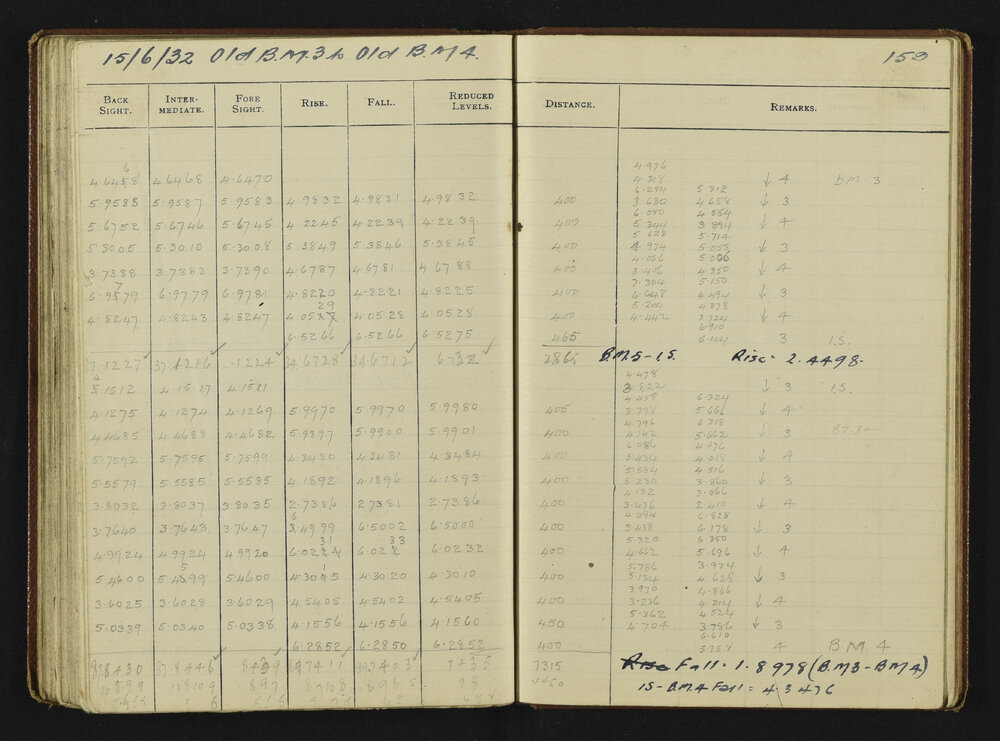 15/6/32 Old B.M.3 to Old B.M4. 153
BACK SIGHT. INTER-MEDIATE. FORE SIGHT. RISE. FALL. REDUCED LEVELS. DISTANCE. REMARKS.
4.976
4.6468 4.6470 4.318 ↓ 4 B.M-3
6.284 5.312
5.9588 5.9587 5.9583 4.9832 4.9831 4.9832 400 3.630 4.658 ↓ 3
6.000 4.554
5.6752 5.6746 5.6745 4.2245 4.2239 4.2239 400 5.344 3.894 ↓ 4
5.628 5.714
5.3005 5.3010 5.3008 5.3849 5.3846 5.3845 400 4.974 5.053 ↓ 3
4.066 5.006
3.7388 3.7383 3.7390 4.6787 4.6781 4.6788 400 3.406 4.350 ↓ 4
7.304 5.150
6.9779 6.9781 4.8220 4.8221 4.8225 400 6.648 4.494 ↓ 3
5.204 4.878
4.8247 4.8243 4.8247 4.0529 4.0528 4.0528 400 4.442 3.724 ↓ 4
6.910
6.5266 6.5266 6.5275 465 6.144 3 I.S.
37.1227 37.1216 .1224 34.6728 34.6712 2865 B.M.3-I.S. Rise. 2.4498
4.478
4.1517 4.1511 3.822 ↓ 3 I.S.
4.458 6.324
4.1275 4.1274 4.1269 5.9970 5.9970 5.9980 400 3.798 5.666 ↓ 4
4.796 6.318
4.4685 4.4688 4.4682 5.9897 5.9900 5.9901 400 4.142 5.662 ↓ 3
6.086 4.676
5.7592 5.7595 5.7599 4.3480 4.3481 4.3484 400 5.434 4.018 ↓ 4
5.884 4.516
5.5579 5.5585 5.5585 4.1892 4.1896 4.1893 400 5.230 3.860 ↓ 3
4.132 3.066
3.8032 3.8037 3.8035 2.7386 2.7381 2.7386 400 3.476 2.410 ↓ 4
4.094 6.828
3.7640 3.7643 3.7647 6.5002 6.5000 400 3.438 6.178 ↓ 3
5.320 6.350
4.9924 4.9924 4.9920 6.0231 6.0233 6.0232 400 4.662 5.696 ↓ 4
5.786 3.974
5.4600 5.4599 5.4600 4.3015 4.3020 4.3010 400 5.134 4.628 ↓ 3
3.970 4.866
3.6025 3.6028 3.6029 4.5405 4.5402 4.5405 400 3.236 4.214 ↓ 4
5.362 4.524
5.0339 5.0340 5.0338 4.1556 4.1556 4.1560 450 4.704 3.786 ↓ 3
6.610
6.2852 6.2850 6.2852 400 5.958 4 B.M.4
7315 Fall. 1.8978 (BM3-BM4)
4450 IS-B.M.4 Fall = 4.3476